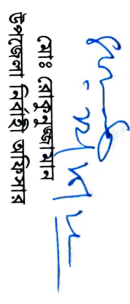 মোঃ রোকনুজ্জামান
উপজেলা নির্বাহী অফিসার